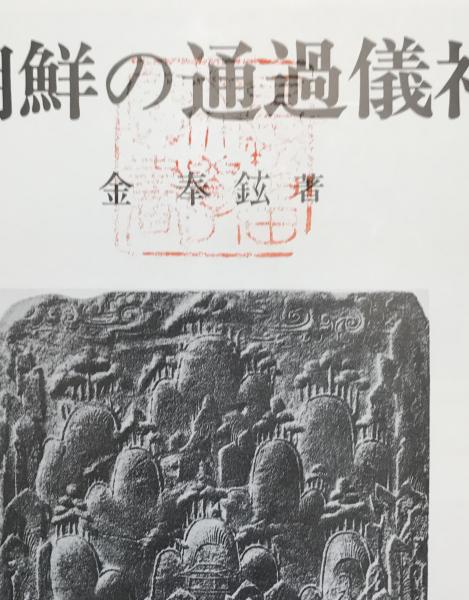 朝鮮の通過儀礼
金 奉 鉉 著